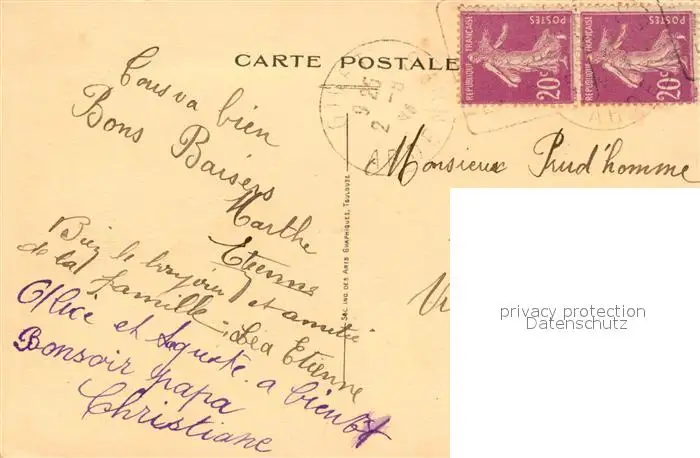 CARTE POSTALE
RÉPUBLIQUE FRANÇAISE
POSTES
20c
RÉPUBLIQUE FRANÇAISE
POSTES
20c
Tous va bien
Bons Baisers
Marthe
Etienne
Bien le bonjour et amitié
de la famille Léa Etienne
Alice et Auguste a bientôt
Bonsoir papa
Christiane
Monsieur Prud'homme
SOC. IND. DES ARTS GRAPHIQUES, TOULOUSE
privacy protection
Datenschutz